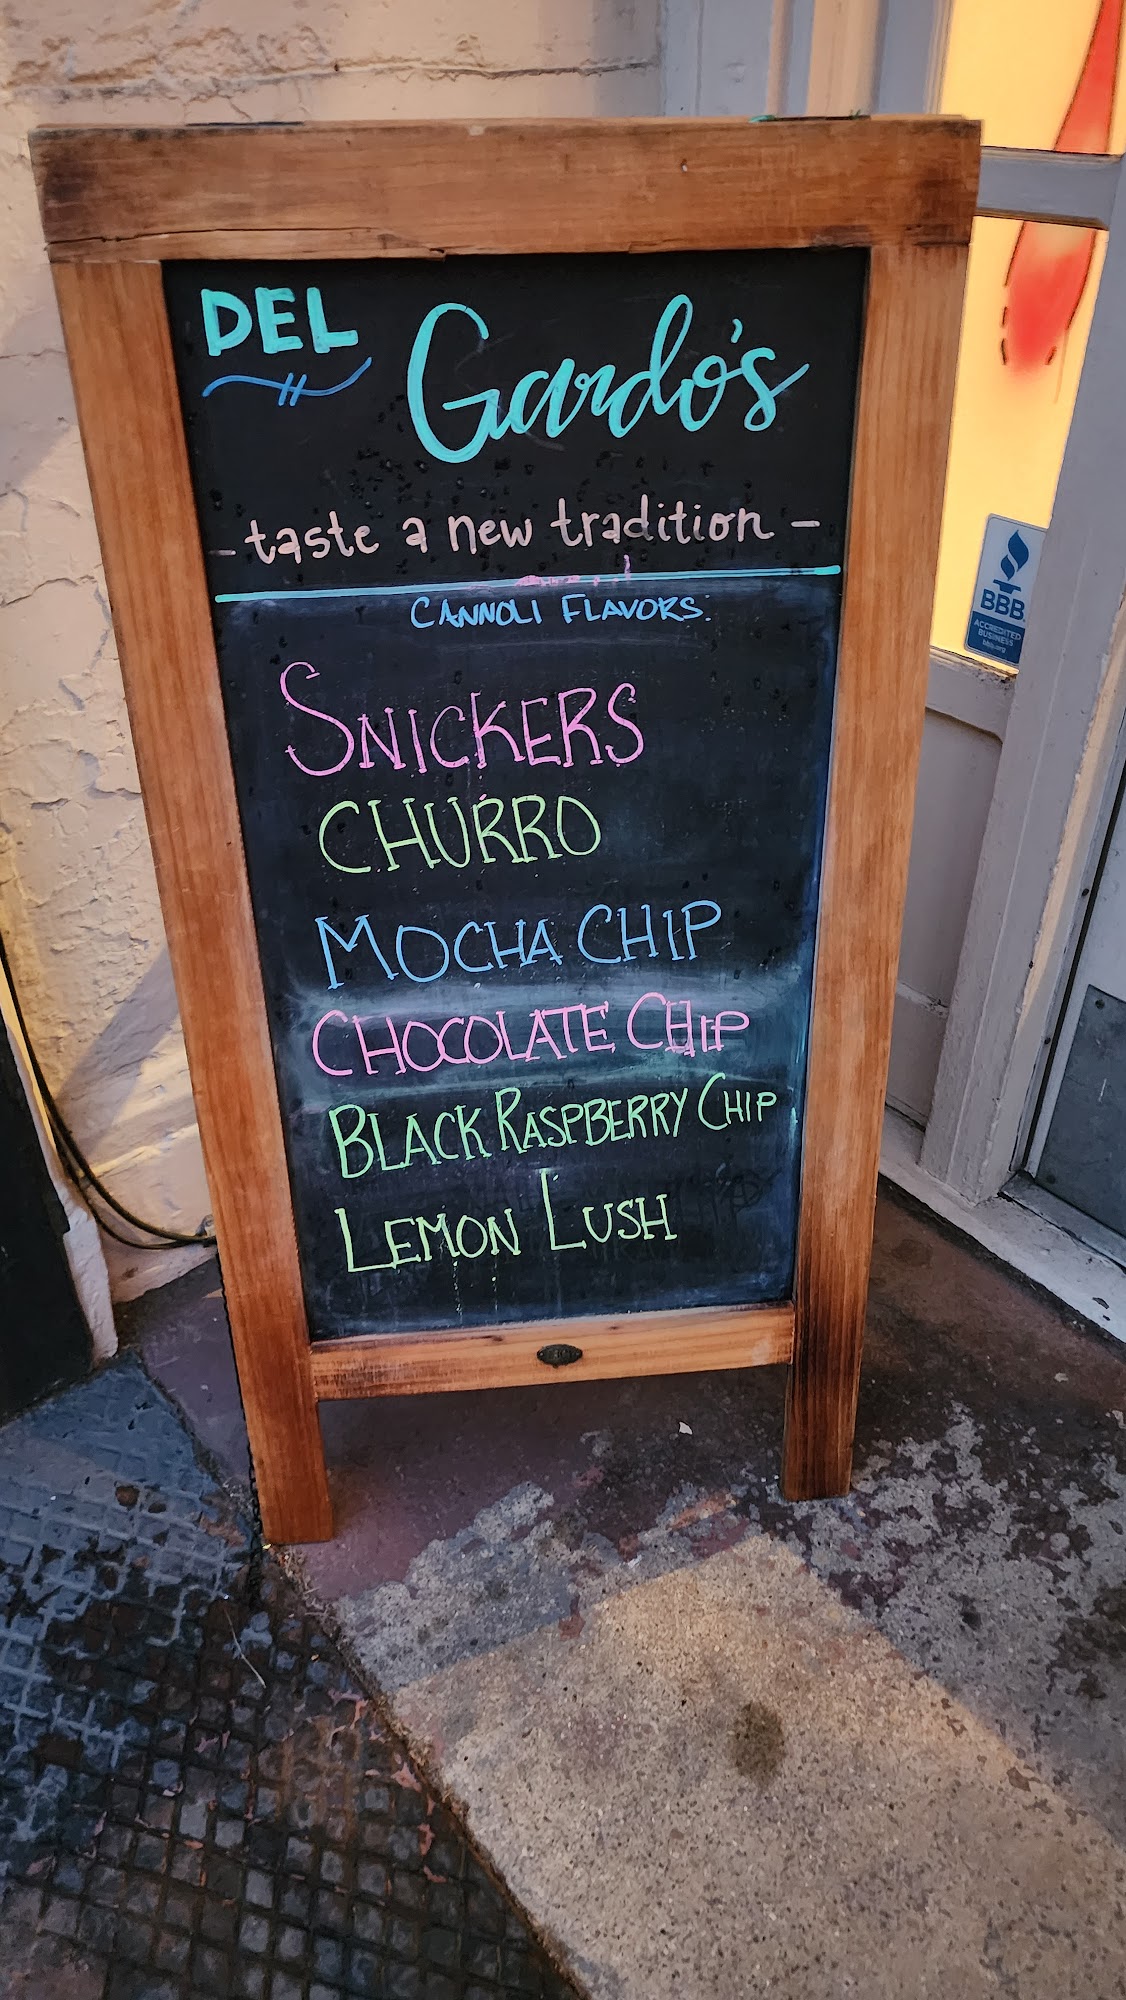 DEL
Gardo's
- taste a new tradition -
CANNOLI FLAVORS:
SNICKERS
CHURRO
MOCHA CHIP
CHOCOLATE CHIP
BLACK RASPBERRY CHIP
LEMON LUSH
BBB
ACCREDITED
BUSINESS
bbb.org